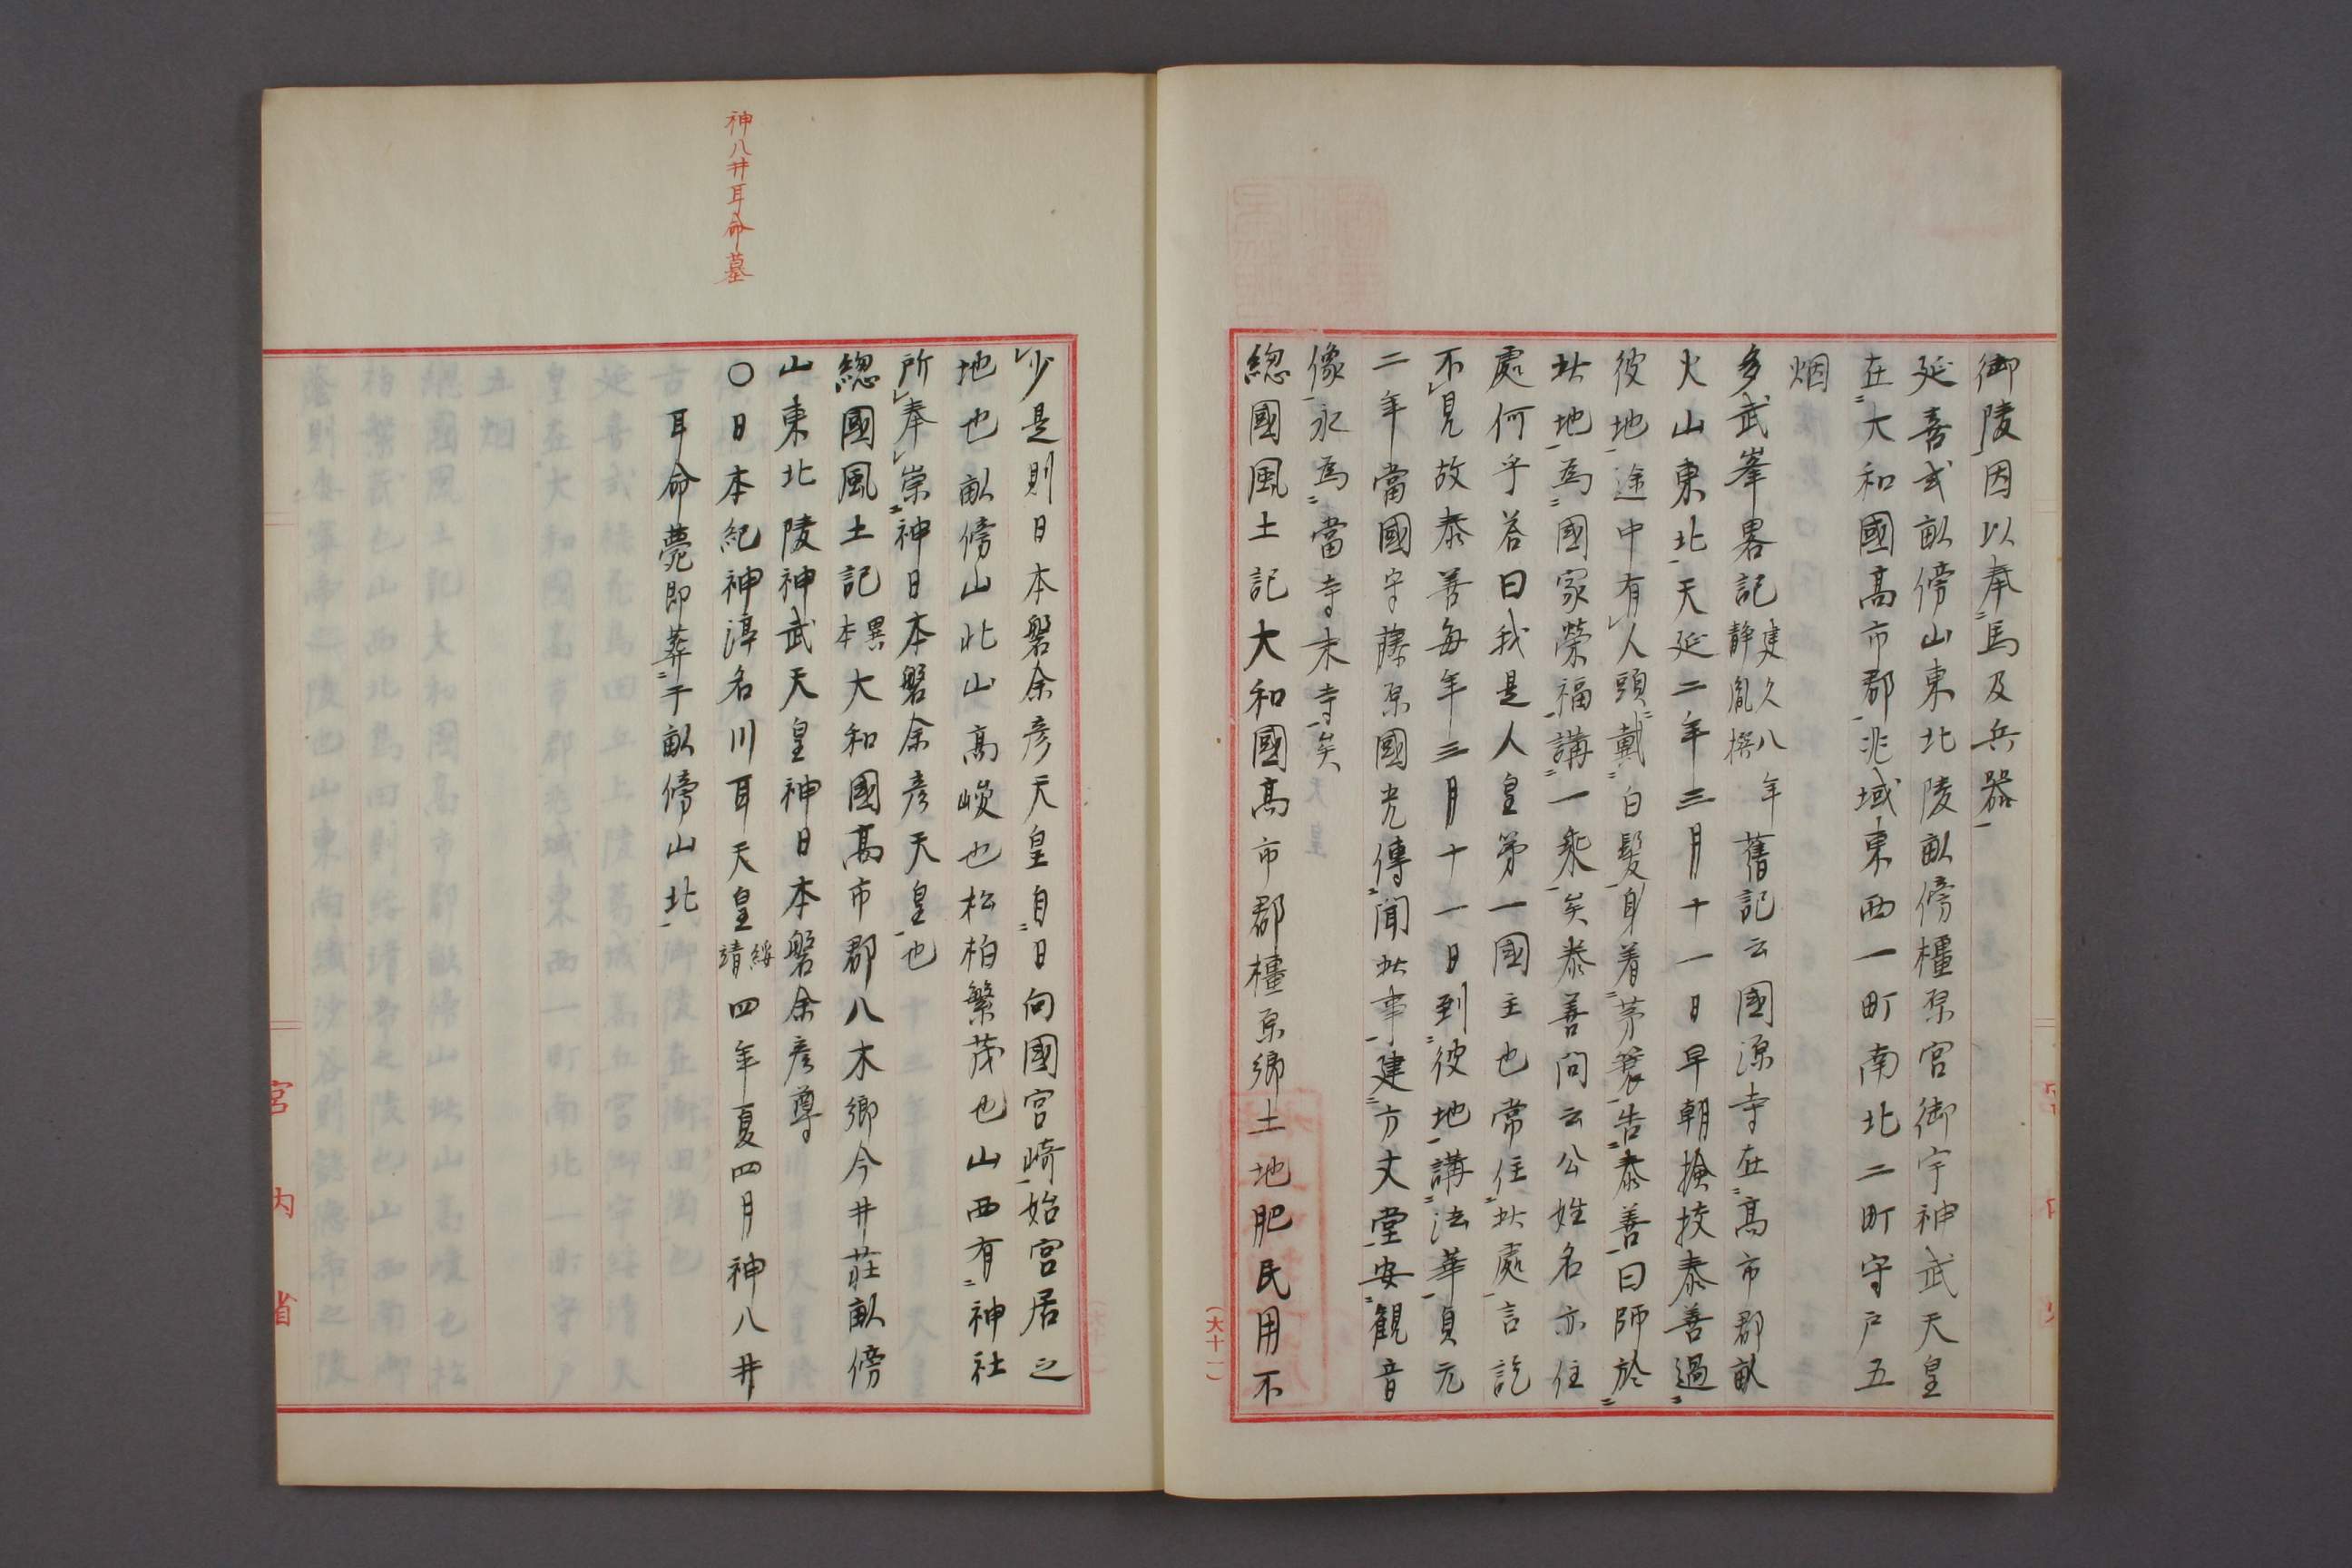 御陵因以奉馬及兵器
延喜式畝傍山東北陵畝傍橿原宮御宇神武天皇
在大和國高市郡兆域東西一町南北二町守戸五
烟
多武峯畧記建久八年静胤撰舊記云國源寺在高市郡畝
火山東北天延二年三月十一日早朝撿挍泰善過
彼地途中有人頭戴白髮身着茅蓑告泰善曰師於
此地為國家榮福講一乘矣泰善問云公姓名亦住
處何乎荅曰我是人皇第一國主也常住此處言訖
不見故泰善每年三月十一日到彼地講法華貞元
二年當國守藤原國光傳聞此事建方丈堂安觀音
像永為當寺末寺矣
総國風土記大和國高市郡橿原郷土地肥民用不
少是則日本磐余彦天皇自日向國宮崎始宮居之
地也畝傍山北山高峻也松柏繁茂也山西有神社
所奉崇神日本磐余彦天皇也
総國風土記異本大和國高市郡八木郷今井莊畝傍
山東北陵神武天皇神日本磐余彦尊
神八井耳命墓
○日本紀神渟名川耳天皇綏靖四年夏四月神八井
耳命薨即葬于畝傍山北
宮内省
(大十一)